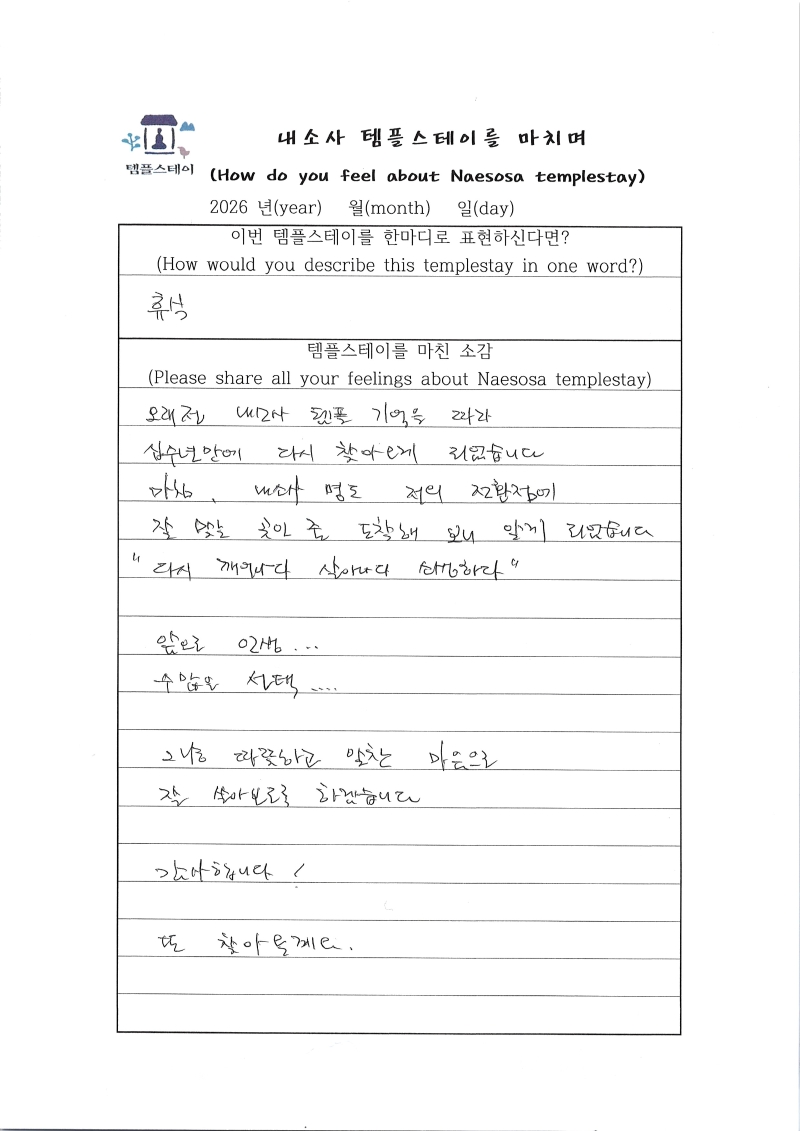 템플스테이
내소사 템플스테이를 마치며
(How do you feel about Naesosa templestay)
2026 년(year) 월(month) 일(day)
이번 템플스테이를 한마디로 표현하신다면?
(How would you describe this templestay in one word?)
휴식
템플스테이를 마친 소감
(Please share all your feelings about Naesosa templestay)
오래전 내소사 템플 기억을 따라
십수년만에 다시 찾아오게 되었습니다
마침, 내소사 명도 저의 전환점에
잘 맞는 곳인 줄 도착해 보니 알게 되었습니다
"다시 깨어나다 살아나다 소생하다"
앞으로 인생...
수많은 선택....
그냥 따뜻하고 알찬 마음으로
잘 살아보도록 하겠습니다
감사합니다!
또 찾아올게요.